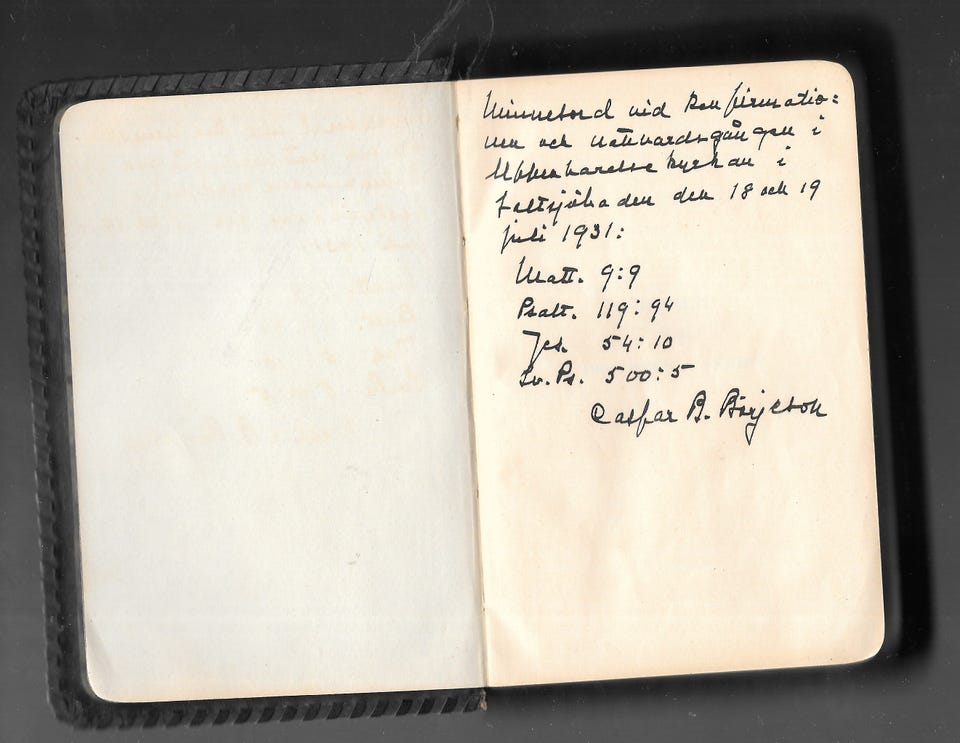 Minnesord vid konfirmatio=
nen och nattvardsgången i
Uppenbarelsekyrkan i
Saltsjöbaden den 18 och 19
juli 1931:
Matt. 9:9
Psalt. 119:94
Jes. 54:10
Sv. Ps. 500:5
Casper B. Börjeson